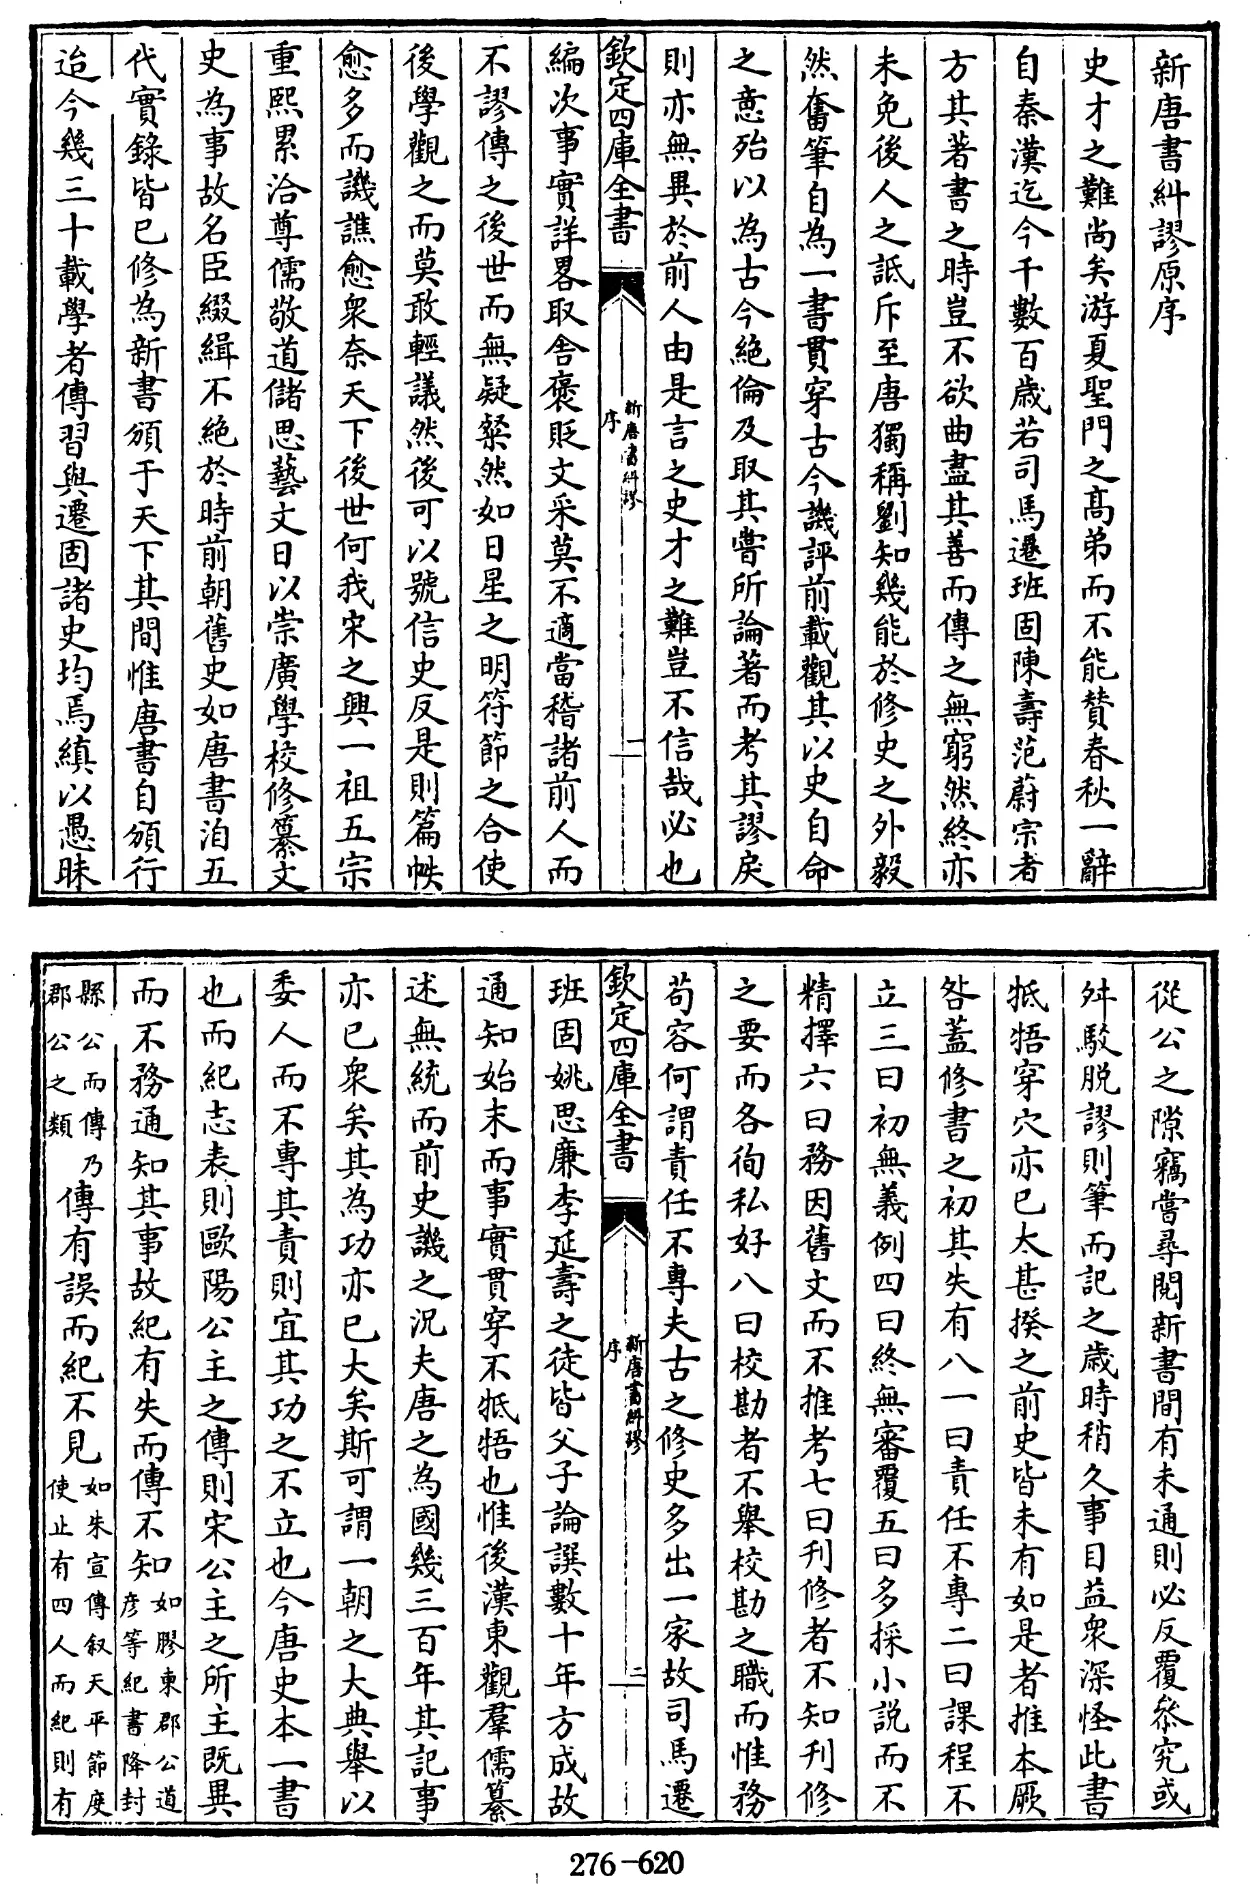 新唐書糾謬原序
史才之難尚矣游夏聖門之高弟而不能賛春秋一辭
自秦漢迄今千數百歳若司馬遷班固陳壽范蔚宗者
方其著書之時豈不欲曲盡其善而傳之無窮然終亦
未免後人之詆斥至唐獨稱劉知幾能於修史之外毅
然奮筆自為一書貫穿古今譏評前載觀其以史自命
之意殆以為古今絶倫及取其嘗所論著而考其謬戾
則亦無異於前人由是言之史才之難豈不信哉必也
欽定四庫全書
新唐書糾謬
序
一
編次事實詳畧取舍褒貶文采莫不適當稽諸前人而
不謬傳之後世而無疑粲然如日星之明符節之合使
後學觀之而莫敢輕議然後可以號信史反是則篇帙
愈多而譏譙愈衆奈天下後世何我宋之興一祖五宗
重熙累洽尊儒敬道儲思藝文日以崇廣學校修纂文
史為事故名臣綴緝不絶於時前朝舊史如唐書洎五
代實錄皆已修為新書頒于天下其間惟唐書自頒行
迨今幾三十載學者傳習與遷固諸史均焉縝以愚昧
從公之隙竊嘗尋閱新書間有未通則必反覆叅究或
舛駁脱謬則筆而記之歳時稍久事目益衆深怪此書
牴牾穿穴亦已太甚揆之前史皆未有如是者推本厥
咎蓋修書之初其失有八一曰責任不專二曰課程不
立三曰初無義例四曰終無審覆五曰多採小説而不
精擇六曰務因舊文而不推考七曰刋修者不知刋修
之要而各徇私好八曰校勘者不舉校勘之職而惟務
苟容何謂責任不專夫古之修史多出一家故司馬遷
欽定四庫全書
新唐書糾謬
序
二
班固姚思廉李延壽之徒皆父子論譔數十年方成故
通知始末而事實貫穿不牴牾也惟後漢東觀羣儒纂
述無統而前史譏之況夫唐之為國幾三百年其記事
亦已衆矣其為功亦已大矣斯可謂一朝之大典舉以
委人而不專其責則宜其功之不立也今唐史本一書
也而紀志表則歐陽公主之傳則宋公主之所主既異
而不務通知其事故紀有失而傳不知如膠東郡公道彦等紀書降封
縣公而傳乃郡公之類傳有誤而紀不見如朱宣傳叙天平節度使止有四人而紀則有
276-620